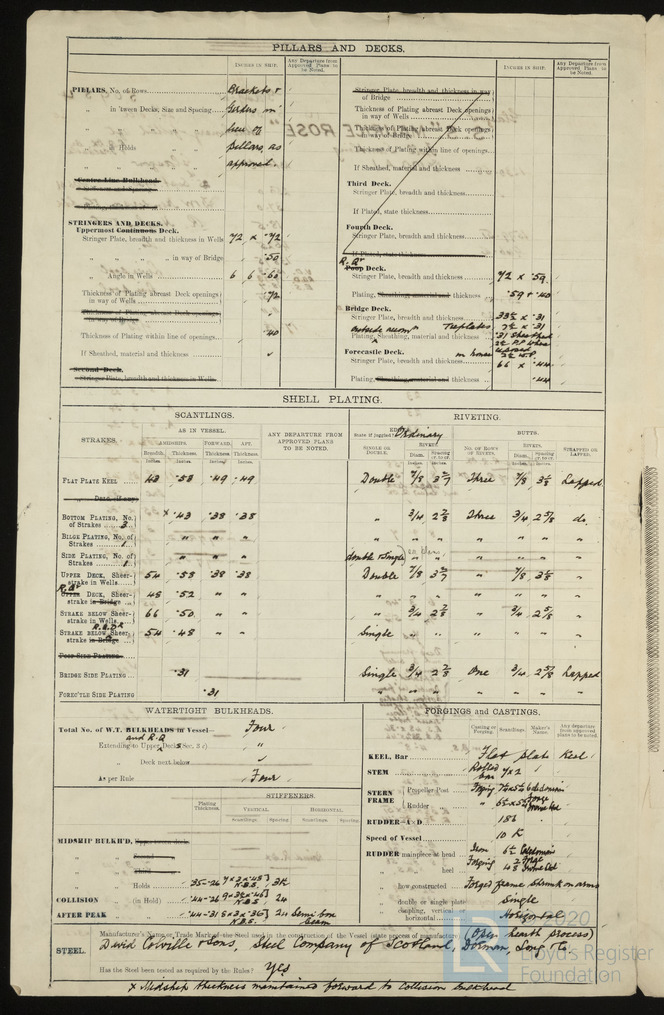 PILLARS AND DECKS.
INCHES IN SHIP.
Any Departure from Approved Plans to be Noted.
PILLARS, No. of Rows Brackets +
" in 'tween Decks, Size and Spacing Girders in
" " " lieu of
" " Holds Pillars, as
approved.
Centre Line Bulkhead
STRINGERS AND DECKS.
Uppermost Continuous Deck.
Stringer Plate, breadth and thickness in Wells 72 x .72
" " " " in way of Bridge .50
" Angle in Wells 6 6 .60
Thickness of Plating abreast Deck openings in way of Wells .72
Thickness of Plating abreast Deck openings in way of Bridge
Thickness of Plating within line of openings .40
If Sheathed, material and thickness ✓
Second Deck.
Stringer Plate, breadth and thickness in Wells
INCHES IN SHIP.
Any Departure from Approved Plans to be Noted.
Stringer Plate, breadth and thickness in way of Bridge
Thickness of Plating abreast Deck openings in way of Wells
Thickness of Plating abreast Deck openings in way of Bridge
Thickness of Plating within line of openings
If Sheathed, material and thickness
Third Deck.
Stringer Plate, breadth and thickness
If Plated, state thickness
Fourth Deck.
Stringer Plate, breadth and thickness
If Plated, state thickness
R.Qr
Poop Deck.
Stringer Plate, breadth and thickness 72 x .59
Plating, Sheathing, material and thickness .59 + .40
Bridge Deck.
Stringer Plate, breadth and thickness 33½ x .31
Tieplates 7½ x .31
Plating, Sheathing, material and thickness .31 Sheathed
Forecastle Deck. in house
Stringer Plate, breadth and thickness 66 x .44
Plating, Sheathing, material and thickness .44
SHELL PLATING.
SCANTLINGS.
RIVETING.
STRAKES.
AS IN VESSEL.
ANY DEPARTURE FROM APPROVED PLANS TO BE NOTED.
EDGES
State if joggled? Ordinary
BUTTS.
AMIDSHIPS. FORWARD. AFT.
Breadth. Thickness. Thickness. Thickness.
Inches. Inches. Inches. Inches.
SINGLE OR DOUBLE.
RIVETS.
Diam. Spacing cr. to cr.
No. OF ROWS OF RIVETS.
RIVETS.
Diam. Spacing cr. to cr.
STRAPPED OR LAPPED.
FLAT PLATE KEEL 43 .53 .49 .49 Double 7/8 Three 7/8 Lapped
BOTTOM PLATING, No. of Strakes 3 x .43 .38 .38 " 3/4 2 5/8 Three 3/4 2 5/8 do.
BILGE PLATING, No. of Strakes 1 " " " " " " " " " "
SIDE PLATING, No. of Strakes 1 " " " double & single " " " " " "
UPPER DECK, Sheerstrake in Wells 54 .53 .38 .38 Double 7/8 " 7/8 "
R.Qr
UPPER DECK, Sheerstrake in Bridge 48 .52 " " " " " " " " "
STRAKE BELOW Sheerstrake in Wells 66 .50 " " " 3/4 " 3/4 2 5/8 "
R.Q.Dk
STRAKE BELOW Sheerstrake in Bridge 54 .48 " " Single " " " " " "
POOP SIDE PLATING
BRIDGE SIDE PLATING .31 Single 3/4 One 3/4 Lapped
FORE'C'TLE SIDE PLATING .31 " " " " " " "
WATERTIGHT BULKHEADS.
Total No. of W.T. BULKHEADS in Vessel— Four
and R.Q
Extending to Upper Deck (Sec. 3 c) "
" Deck next below ✓
As per Rule Four
STIFFENERS.
Plating Thickness.
VERTICAL. HORIZONTAL.
Scantlings. Spacing Scantlings. Spacing
MIDSHIP BULKH'D, Upper tween decks
" " Second
" " Third
" " Holds .35-.26 B.S. 30
COLLISION " (in Hold) .44-.26 B.S. 24
AFTER PEAK " .44-.31 B.S. 24 Semi box beam
FORGINGS AND CASTINGS.
Casting or Forging. Scantlings. Maker's Name. Any departure from approved plans to be noted.
KEEL, Bar Flat plate Keel
STEM Rolled bar 7 x 2
STERN FRAME { Propeller Post Forging
Rudder "
RUDDER—A×D 186
Speed of Vessel 10 K
RUDDER mainpiece at head Iron
" " heel Forging
" how constructed Forged frame shrunk on arms
" double or single plate Single
" coupling, vertical or horizontal Horizontal
STEEL.
Manufacturer's Name or Trade Mark of the Steel used in the construction of the Vessel (state process of manufacture) (Open hearth process)
David Colville & Sons, Steel Company of Scotland, Dorman, Long & Co.
Has the Steel been tested as required by the Rules? Yes
x Midship thickness maintained forward to Collision bulkhead
LR
©2020
Lloyd's Register
Foundation